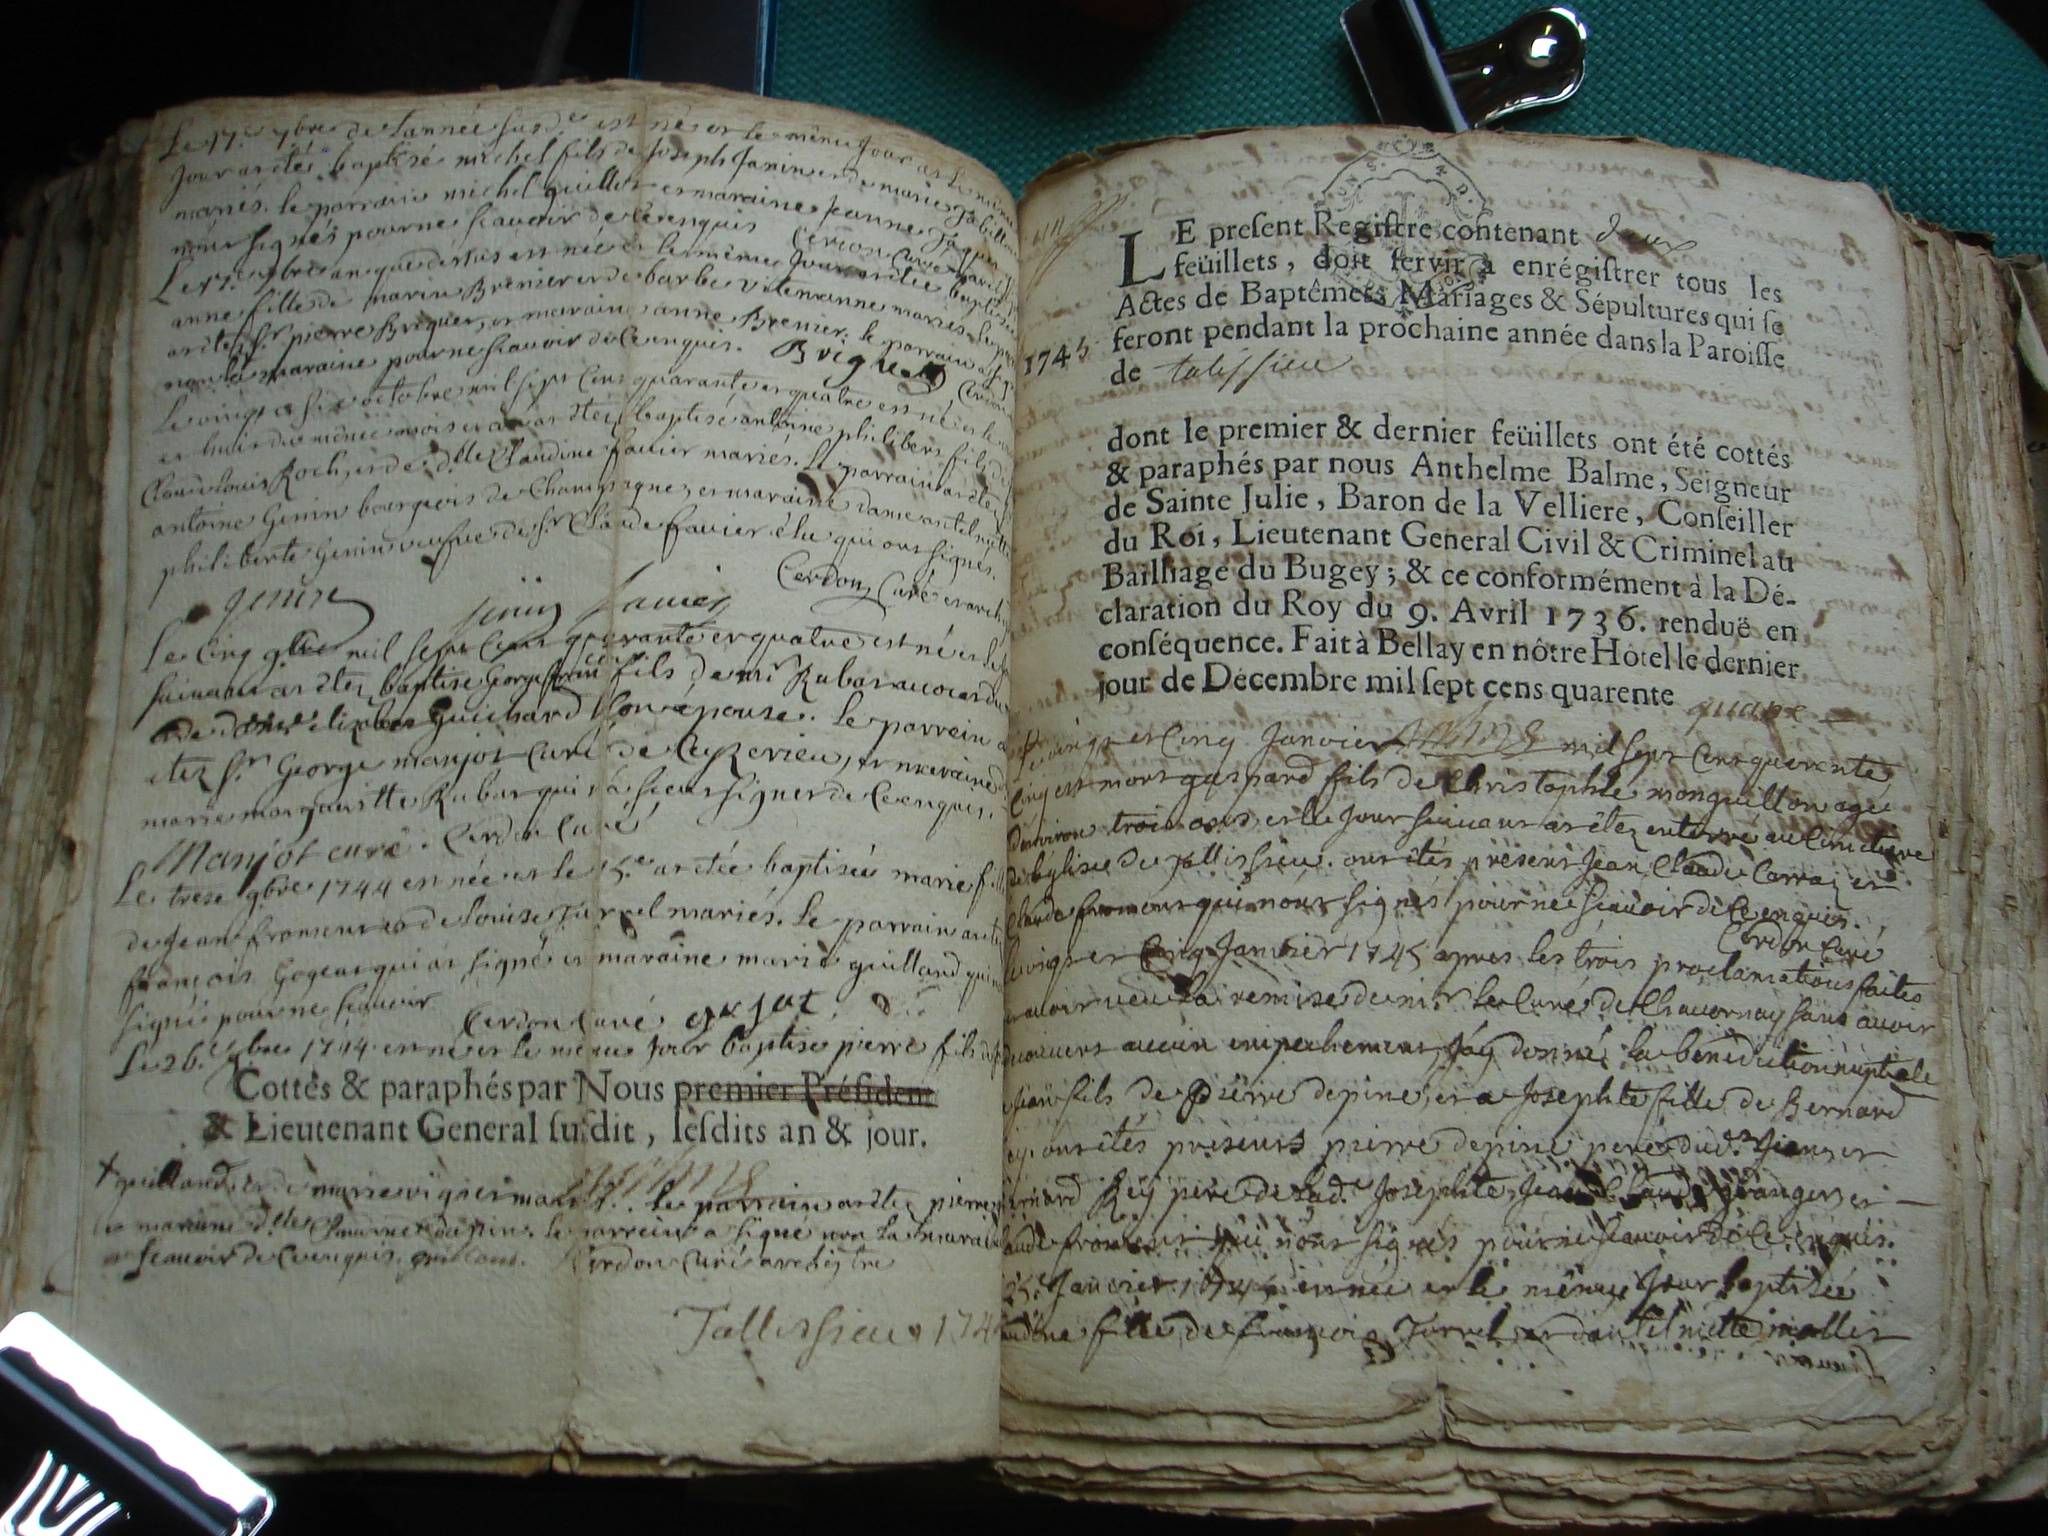 Le 17.e 7bre de l'année susd.e est né et le même jour
jour a été baptisé michel fils de Joseph Janin et de marie
mariés. le parrain michel guillet et maraine Jeanne
nont signés pour ne scavoir de ce enquis Cerdon Curé
Le 17. 7bre an que dessus est née et le même Jour a été baptisée
anne fille de marin Brenier et de barbe mariés. Le
a été Sr pierre Briguet, et maraine anne Brenier. le parrain a
non la maraine pour ne scavoir de ce enquis. Briguet Cerdon
Le vingt et six octobre mil sept Cent quarante et quatre est né et le
et huit du même mois et an a été baptisé antoine philibert fils de
Claude louis Roch, et de d.lle Claudine favier mariés. le parrain a été
antoine Genin bourgeois de Champagne, et maraine dame antelmette
philiberte Genin veufve de Sr Claude favier élu qui ont signés.
Cerdon Curé et arch
Genin Genin favier
Le Cinq 9bre mil sept Cent quarante et quatre est né et le
suivant a été baptisé George fils de mr Rubat avocat
et de Guichard son épouse. Le parrein a
etez Sr George manjot Curé de Ceyzerieu, et maraine
marie marguerite Rubat qui signer de ce enquis.
Manjot curé. Cerdon Curé
Le treze 9bre 1744 est née et le 15.e a été baptisée marie
de Jean froment et de Louise Turrel mariés. Le parrain a été
françois Gogeat qui a signé et maraine marie guilland qui
signé pour ne scavoir
Cerdon Curé gojat
Le 26.e 9bre 1744 est né et le même Jour baptisé pierre fils
Cottés & paraphés par Nous premier Président
& Lieutenant General susdit, lesdits an & jour.
+ guilland et de marie mariés. Le parrain a été pierre
et maraine d.lle dupin. le parrein a signé non la maraine
scavoir de ce enquis. guilland. Cerdon Curé archiptre
Tallissieu 174
LE present Registre contenant deux
feüillets, doit servir à enrégistrer tous les
Actes de Baptêmees Mariages & Sépultures qui se
feront pendant la prochaine année dans la Paroisse
1745
de talissieu
dont le premier & dernier feüillets ont été cottés
& paraphés par nous Anthelme Balme, Seigneur
de Sainte Julie, Baron de la Velliere, Conseiller
du Roi, Lieutenant General Civil & Criminel au
Bailliage du Bugey; & ce conformément à la Dé-
claration du Roy du 9. Avril 1736. renduë en
conséquence. Fait à Bellay en nôtre Hôtel le dernier
jour de Décembre mil sept cens quarente quatre
Le vingt et Cinq Janvier mil sept Cent quarente
Cinq est mort gaspard fils de Christophle monguillon agé
d'environ trois ans et le Jour suivant a été enterré au Cimetiere
de léglise de Tallissieu. ont étés présent Jean Claude Carraz et
Claude froment qui n'ont signés pour ne scavoir de Ce enquis.
Cerdon Curé
Le vingt et Cinq Janvier 1745 apres les trois proclamations faites
et avoir veu la remise de mr. Le Curé de Chavornay sans avoir
découvert aucun empechement J'ay donné la bénédiction nuptiale
a Jean fils de pierre depine, et a Josephte fille de Bernard
Rey. ont étés présents pierre depine pere dud. Jean et
Bernard Rey pere de lad.e Josephte, Jean Claude granger, et
Claude froment qui n'ont signés pour ne scavoir de Ce enquis.
25.e Janvier 1745 est née et le même Jour baptisée
fille de françois Turrel, et d'antelmette mallet